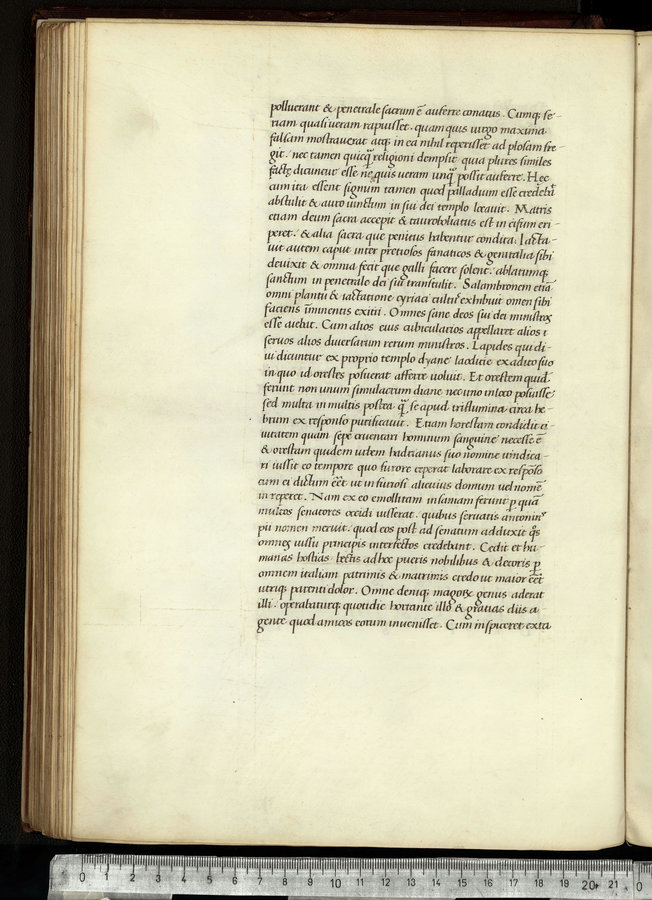 polluerant & penetrale sacrum ē auferre conatus. Cumq; se-
riam quasi ueram rapuisset. quam quis uirgo maxima
falsam mostrauerat atq; in ea nihil reperisset ad plosam fre-
git. nec tamen quicq̃ religioni dempsit quia plures similes
factę dicuntur esse ne quis ueram unq̃ possit auferre. Hec
cum ita essent signum tamen quod palladium esse credebat̃
abstulit & auro uinctum in sui dei templo locauit. Matris
etiam deum sacra accepit & tauroboliatus est in cisum eri-
peret. & alia sacra que penitus habentur condita. Iacta-
uit autem caput inter pretiosos fanaticos & genitalia sibi
deuixit & omnia fecit que galli facere solent. ablatumq;
sanctum in penetrale dei sui transtulit. Salambronem etiā
omni planctu & iactatione cyriaci cultus exhibuit omen sibi
faciens īminentis exitii. Omnes sane deos sui dei ministros
esse aiebat. Cum alios eius cubicularios appellaret alios
seruos alios diuersarum rerum ministros. Lapides qui di-
ui dicuntur ex proprio templo dyane laodicie ex adito suo
in quo id orestes posuerat afferre uoluit. Et orestem quid̃
ferunt non unum simulacrum diane nec uno in loco posuisse
sed multa in multis postea q̃ se apud tria flumina circa he-
brum ex responso purificauit. Etiam horestam condidit ci-
uitatem quam sepe cruentari hominum sanguine necesse ē
& orestam quidem urbem hadrianus suo nomine uindica-
ri iussit eo tempore quo furore ceperat laborare ex respōso
cum ei dictum eēt ut in furiosi alicuius domum uel nomē
in reperet. Nam ex eo emollitam insaniam ferunt p quā
multos senatores occidi iusserat. quibus seruatis antonin9
pii nomen meruit. quod eos post ad senatum adduxit q̃s
omnes iussu principis interfectos credebant. Cedit et hu-
manas hostias lectis ad hoc pueris nobilibus & decoris p
omnem italiam patrimis & matrimis credo ut maior eēt
utriq; parenti dolor. Omne deniq; magorum genus aderat
illi. operabaturq; quotidie hortante illo & gratias diis a-
gente quod amicos eorum inuenisset. Cum inspiceret exta
0 1 2 3 4 5 6 7 8 9 10 11 12 13 14 15 16 17 18 19 20 21 0